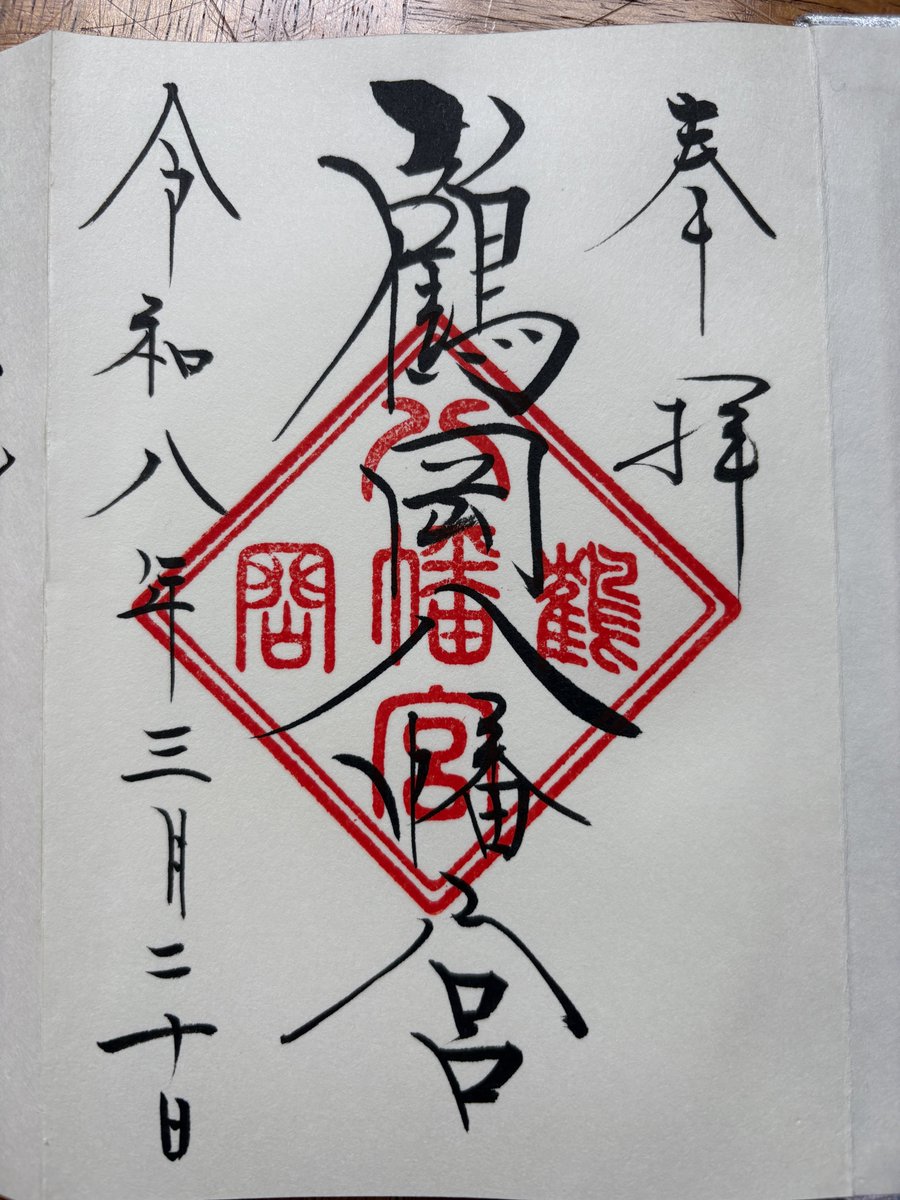 奉拝
鶴岡八幡宮
令和八年三月二十日
鶴
八幡宮
岡